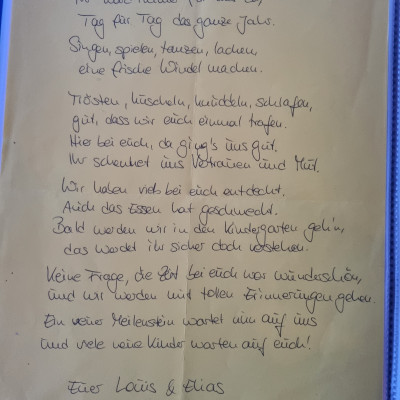 Ihr wart immer für uns da,
Tag für Tag das ganze Jahr.
Singen, spielen, tanzen, lachen,
eine frische Windel machen.
Trösten, kuscheln, knuddeln, schlafen,
gut, dass wir euch einmal trafen.
Hier bei euch, da ging's uns gut.
Ihr schenktet uns Vertrauen und Mut.
Wir haben viel bei euch entdeckt.
Auch das Essen hat geschmeckt.
Bald werden wir in den Kindergarten geh'n,
das werdet ihr sicher doch verstehen.
Keine Frage, die Zeit bei euch war wunderschön,
und wir werden mit tollen Erinnerungen gehen.
Ein neuer Meilenstein wartet nun auf uns
und viele neue Kinder warten auf euch!
Euer Louis & Elias